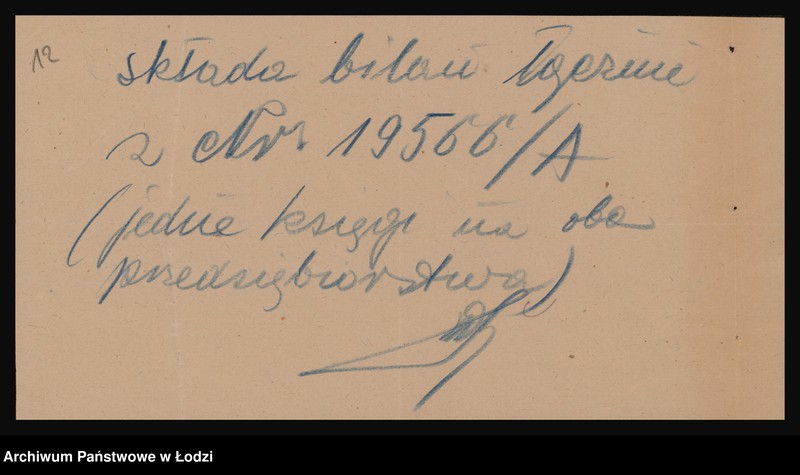 12
składa bilans łącznie
z Nr 19566/A
(jedne księgi na oba
przedsiębiorstwa)
Archiwum Państwowe w Łodzi